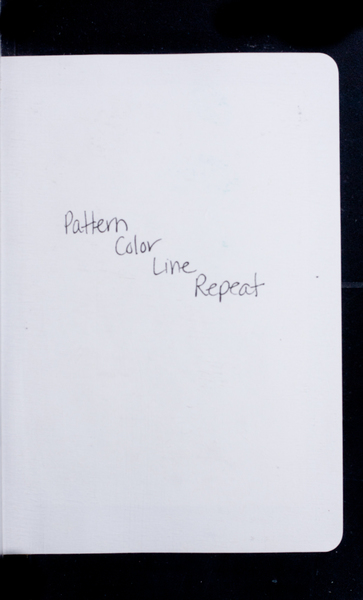 Pattern
Color
Line
Repeat